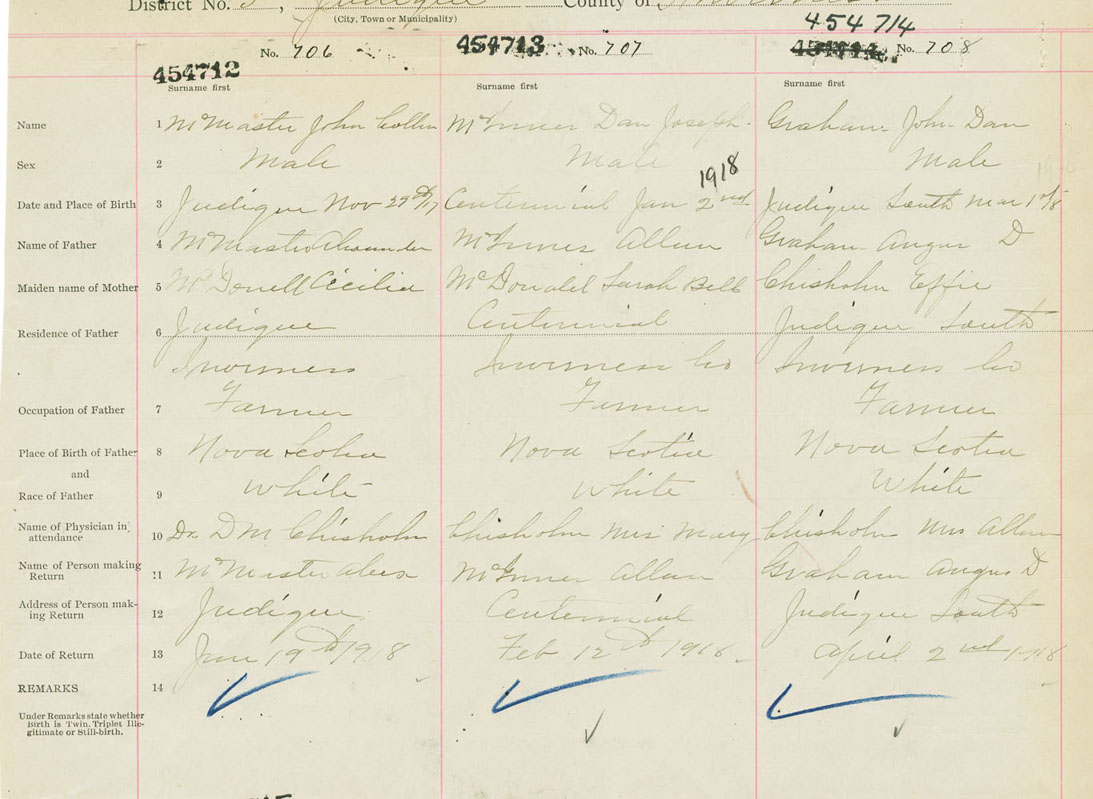 District No. 3, Judique County of Inverness
(City, Town or Municipality)
454714
454712 No. 706 454713 No. 707 No. 708
Surname first Surname first Surname first
Name 1 McMaster John Collin McInnes Dan Joseph Graham John Dan
Sex 2 Male Male Male
1918
Date and Place of Birth 3 Judique Nov '17 Centennial Jan 2nd Judique South Mar 1st/18
Name of Father 4 McMaster Alexander McInnes Allan Graham Angus D
Maiden name of Mother 5 McDonell Cecilia McDonald Sarah Bell Chisholm Effie
Residence of Father 6 Judique Centennial Judique South
Inverness Inverness Co Inverness Co
Occupation of Father 7 Farmer Farmer Farmer
Place of Birth of Father 8 Nova Scotia Nova Scotia Nova Scotia
and
Race of Father 9 White White White
Name of Physician in attendance 10 Dr. D M Chisholm Chisholm Mrs Mary Chisholm Mrs Allan
Name of Person making Return 11 McMaster Alex McInnes Allan Graham Angus D
Address of Person making Return 12 Judique Centennial Judique South
Date of Return 13 Jan 19th 1918 Feb 12th 1918 April 2nd 1918
REMARKS 14
Under Remarks state whether
Birth is Twin. Triplet Ille-
gitimate or Still-birth.